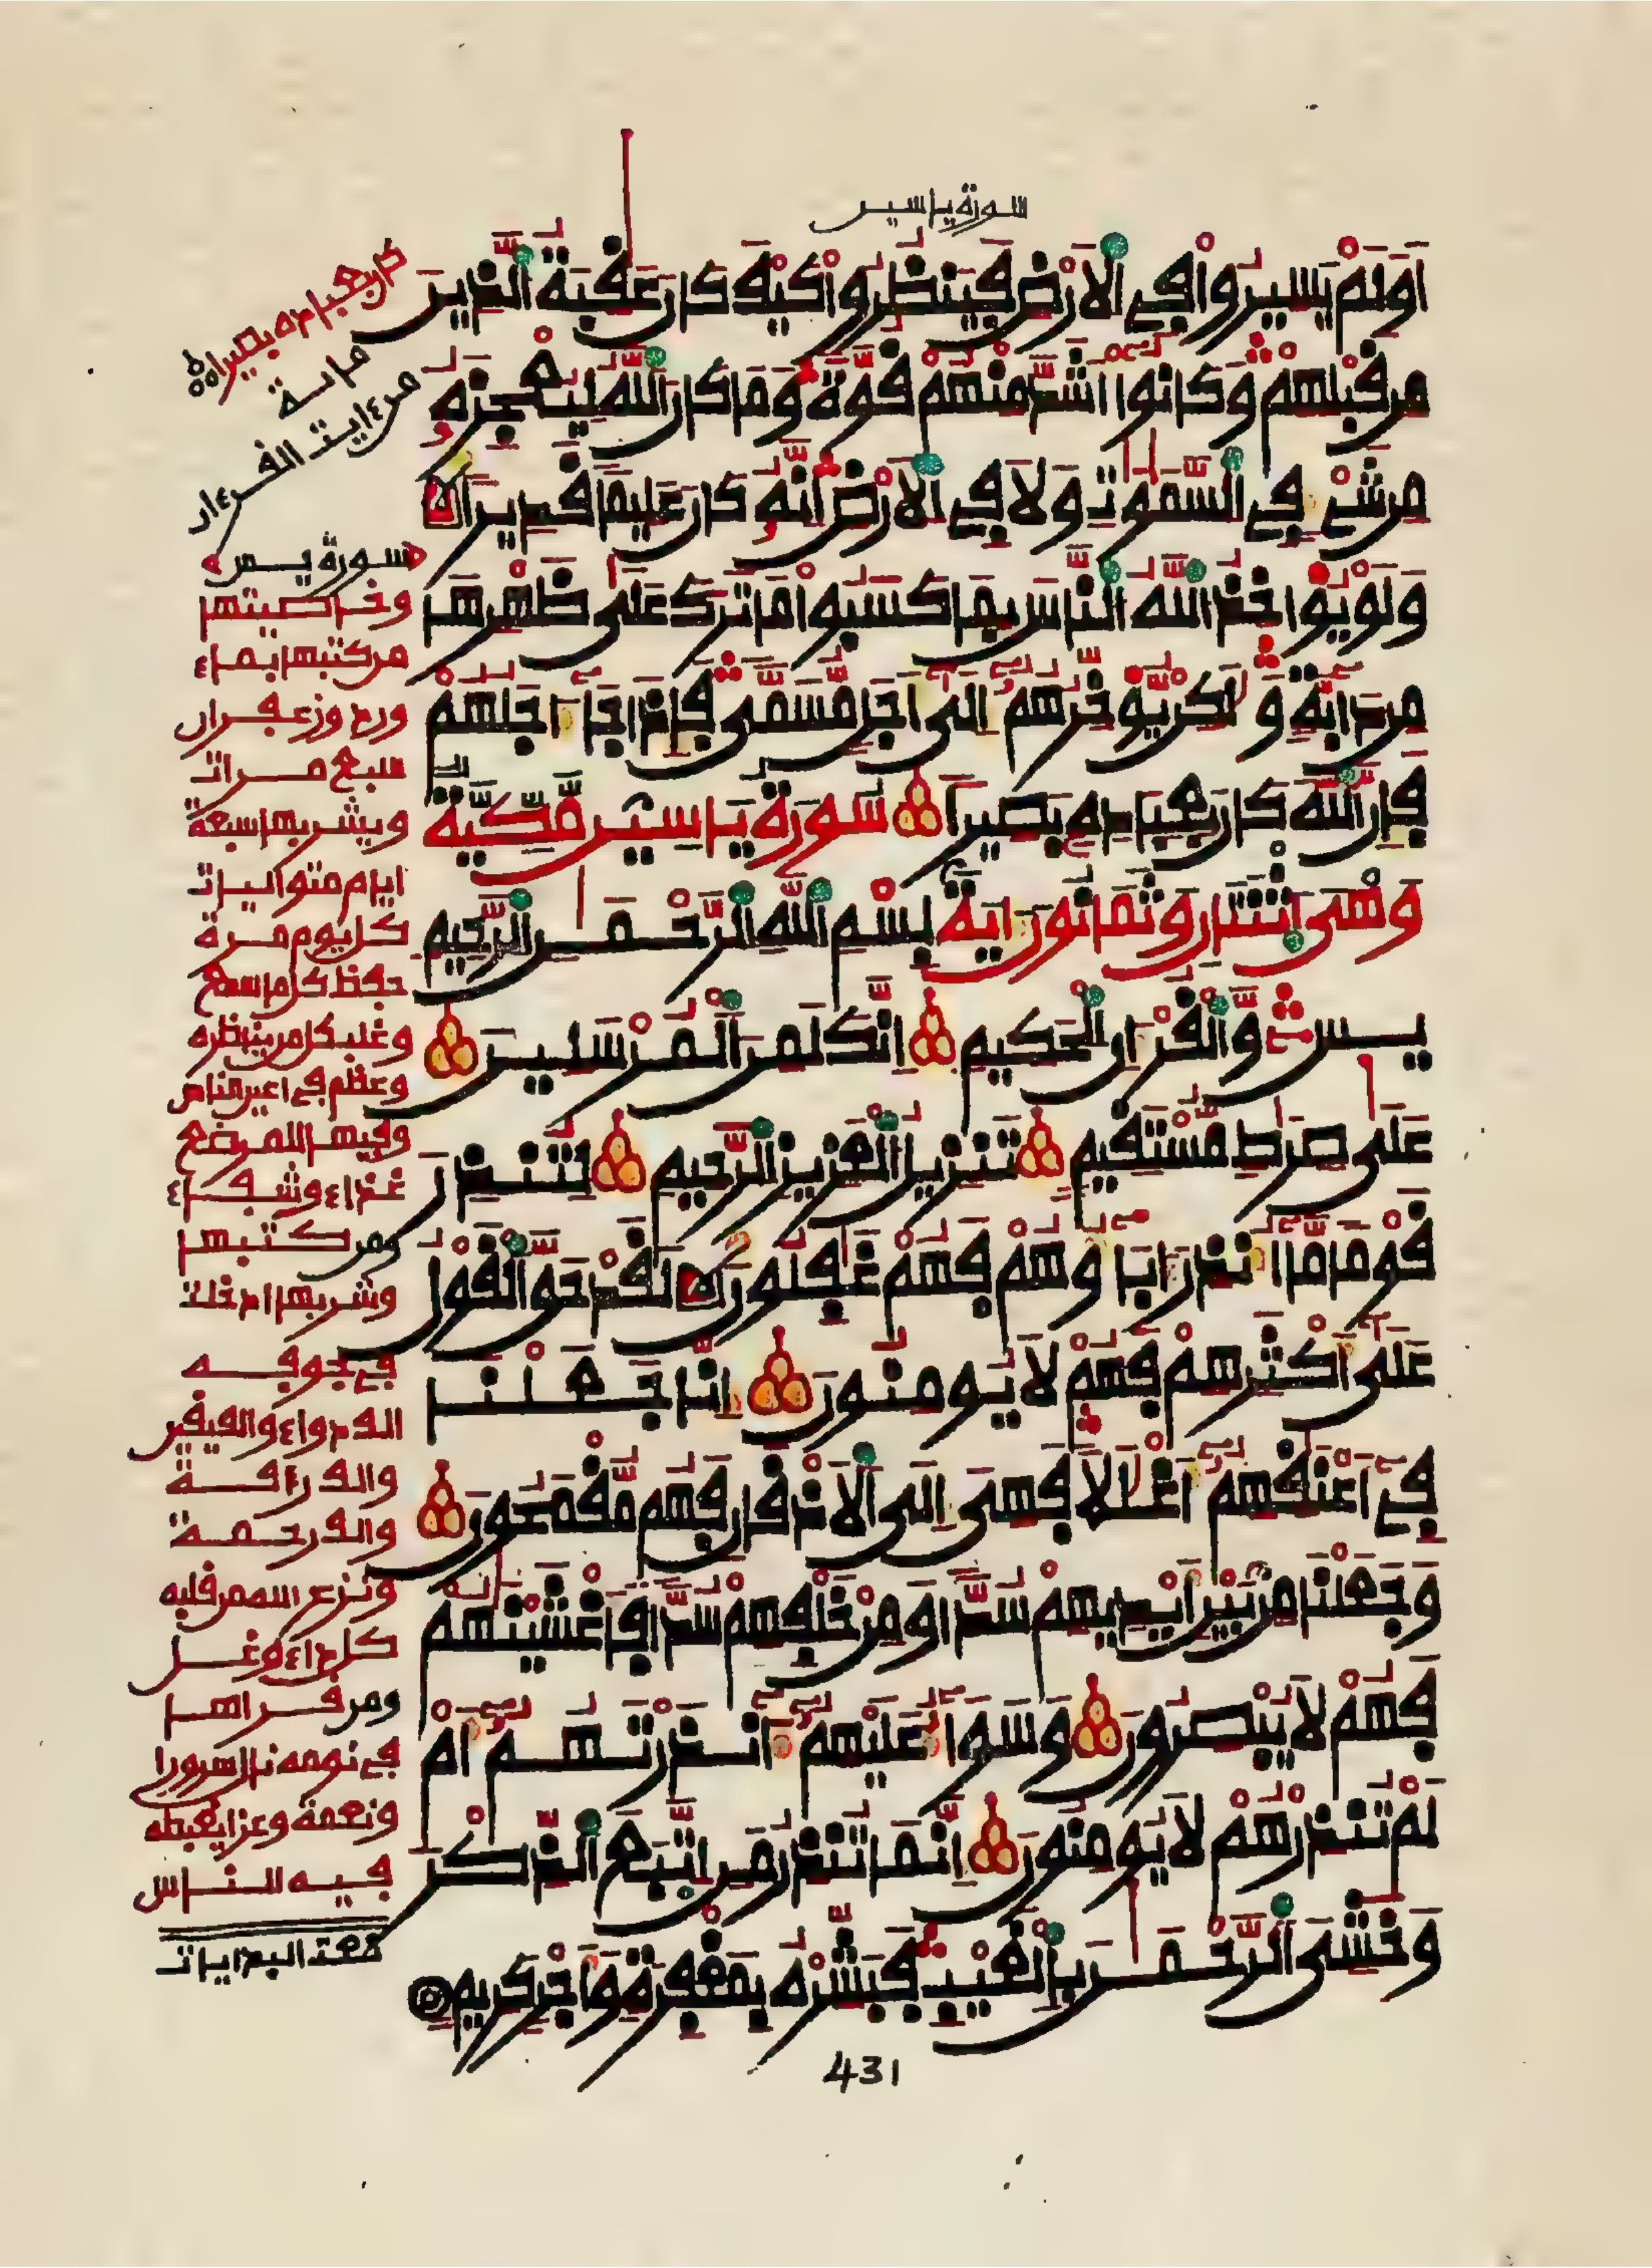 سورة ياسين
اَوَلَمْ يَسِيرُواْ فِي اِلَارْضِ فَيَنظُرُواْ كَيْفَ كَانَ عَٰقِبَةُ اُلذِينَ
مِن قَبْلِهِمْ وَكَانُواْ أَشَدَّ مِنْهُمْ قُوَّةً وَمَا كَانَ اَللَّهُ لِيُعْجِزَهُ
مِن شَيْءٍ فِي اِلسَّمَٰوَٰتِ وَلَا فِي اِلَارْضِ إِنَّهُ كَانَ عَلِيماً قَدِيراً
وَلَوْ يُوَاخِذُ اُللَّهُ اُلنَّاسَ بِمَا كَسَبُواْ مَا تَرَكَ عَلَىٰ ظَهْرِهَا
مِن دَابَّةٍ وَلَٰكِنْ يُّوَخِّرُهُمْ إِلَىٰ أَجَلٍ مُّسَمّىً فَإِذَا جَاءَ اجَلُهُمْ
فَإِنَّ اَللَّهَ كَانَ بِعِبَادِهِ بَصِيراً سُورَةُ يَاسِين مَّكِّيَّةٌ
وَهْىَ اِثْنَتَانِ وَثَمَانُونَ ءَايَةً بِسْمِ اِللَّهِ اِلرَّحْمَٰنِ اِلرَّحِيمِ
يسٓ وَالْقُرْءَانِ اِلْحَكِيمِ إِنَّكَ لَمِنَ اَلْمُرْسَلِينَ
عَلَىٰ صِرَٰطٍ مُّسْتَقِيمٍ تَنزِيلُ اُلْعَزِيزِ اِلرَّحِيمِ لِتُنذِرَ
قَوْماً مَّا أُنذِرَ ءَابَاؤُهُمْ فَهُمْ غَٰفِلُونَ لَقَدْ حَقَّ اَلْقَوْلُ
عَلَىٰ أَكْثَرِهِمْ فَهُمْ لَا يُومِنُونَ إِنَّا جَعَلْنَا
فِي أَعْنَٰقِهِمْ أَغْلَٰلًا فَهِىَ إِلَى اَلَاذْقَانِ فَهُم مُّقْمَحُونَ
وَجَعَلْنَا مِنۢ بَيْنِ أَيْدِيهِمْ سُدّاً وَمِنْ خَلْفِهِمْ سُدّاً فَأَغْشَيْنَٰهُمْ
فَهُمْ لَا يُبْصِرُونَ وَسَوَاءٌ عَلَيْهِمُ ءَآنذَرْتَهُمُ أَمْ
لَمْ تُنذِرْهُمْ لَا يُومِنُونَ إِنَّمَا تُنذِرُ مَنِ اِتَّبَعَ اَلذِّكْرَ
وَخَشِىَ اَلرَّحْمَٰنَ بِالْغَيْبِ فَبَشِّرْهُ بِمَغْفِرَةٍ وَأَجْرٍ كَرِيمٍ
كان بعباده بصيرا
مائة
من ءايت القرءان
سورة يس
وخاصيتها
من كتبها بماء
ورد وزعفران
سبع مرات
ويشربها سبعة
ايام متواليات
كل يوم مرة
حفظ كل ما سمع
وغلب كل من يناظره
وعظم في اعين الناس
ومن كتبها
وشربها ادخلت
في جوفه
الف دواء والف يقين
والف رافة
والف رحمة
ونزع الله من قلبه
كل داء وغل
ومن قراها
في نومه نال سرورا
ونعمة وعزا يغبطه
فيه الناس
431